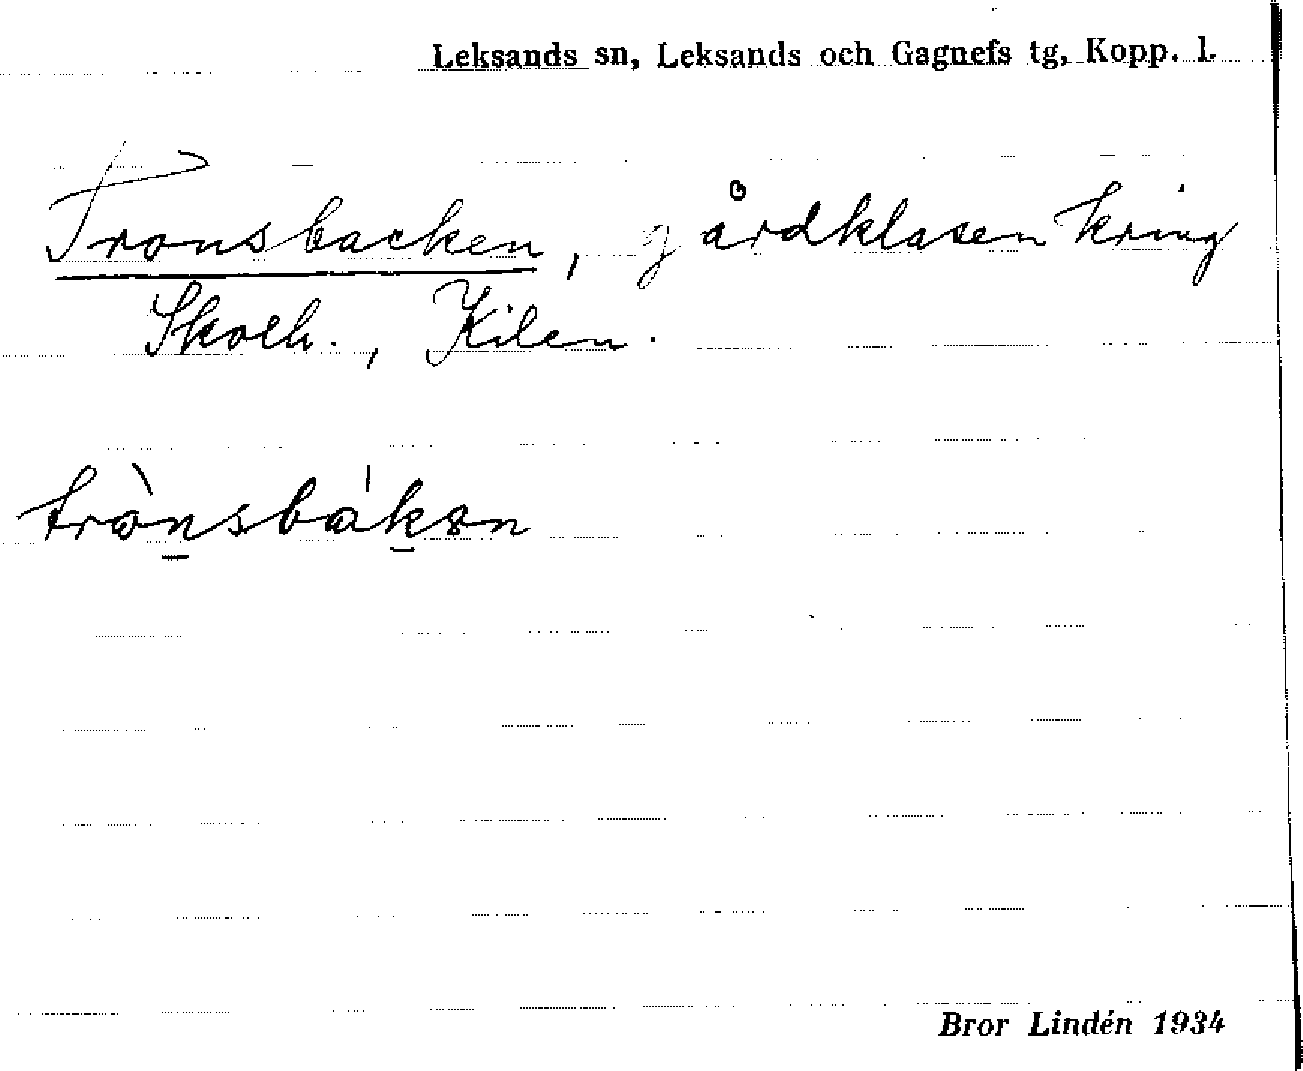 Leksands sn, Leksands och Gagnefs tg, Kopp. l.
Tronsbacken, gårdklasen kring
Skolh., Kilen.
trònsbákən
Bror Lindén 1934